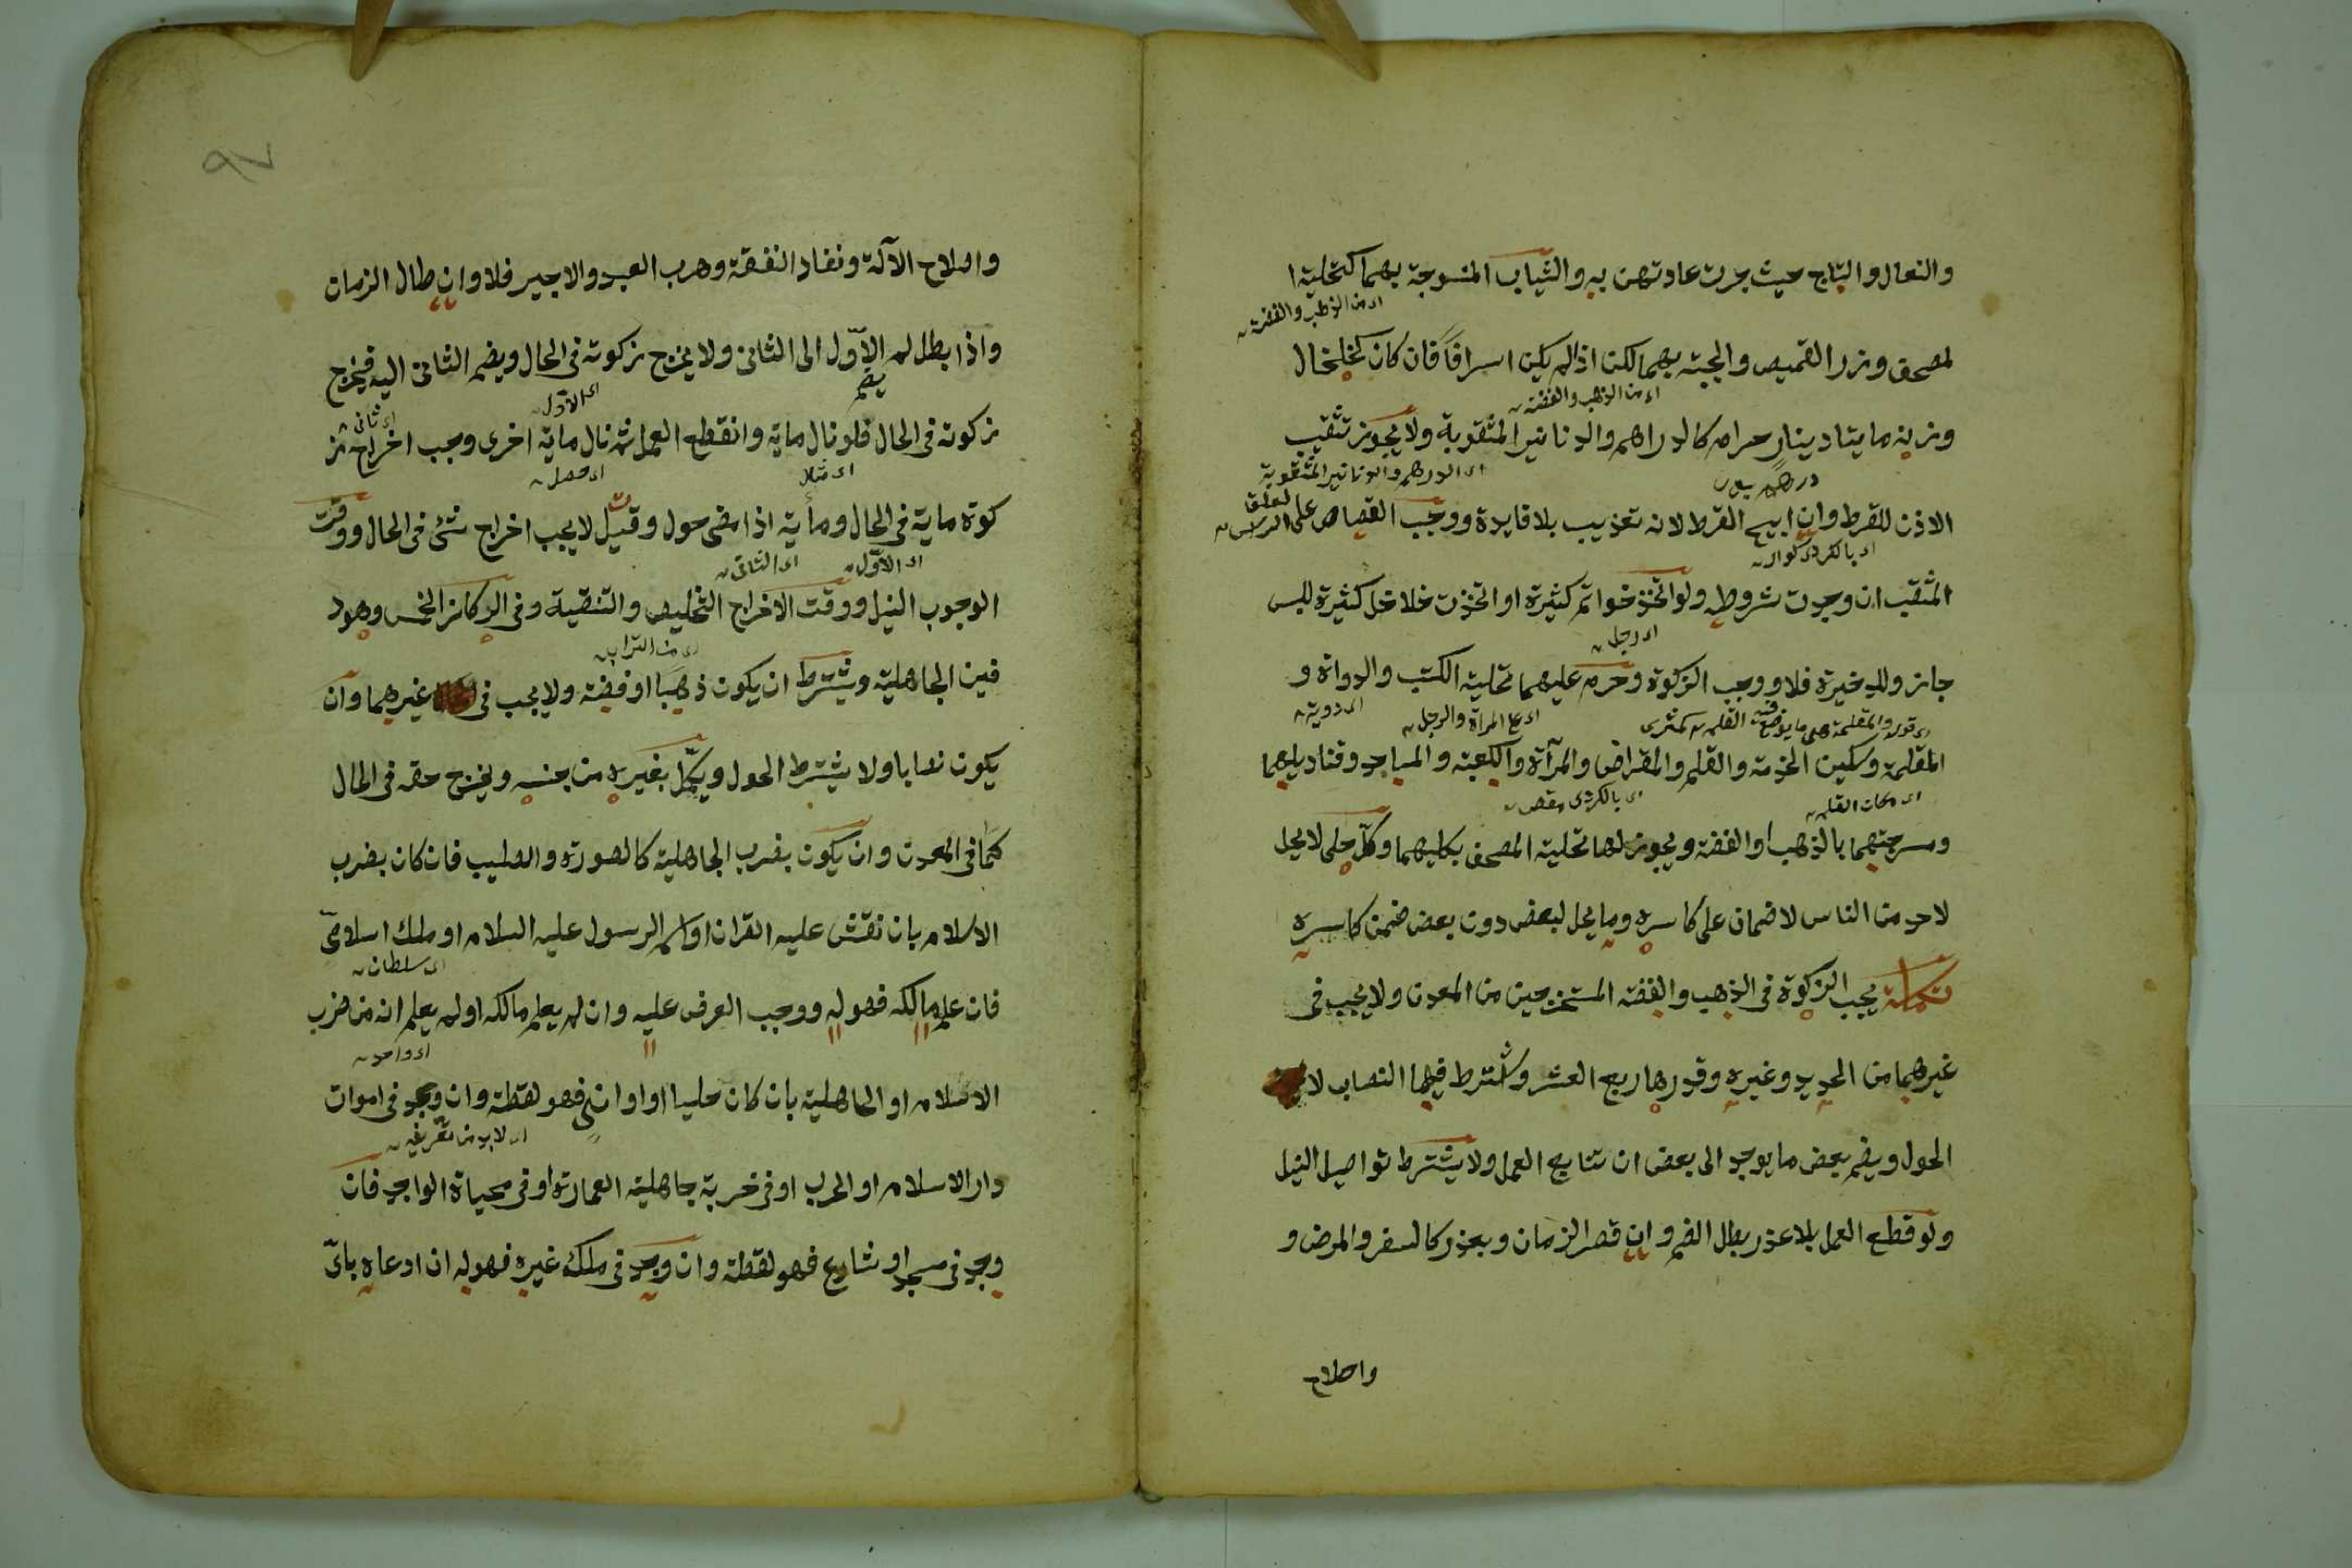 والنعال والتاج حيث جرت عادتهن به والثياب المنسوجة بهما كتحلية ا
اى من الذهب والفضة
لمصحف وزر القميص والجبة بهما لكن اذا لم يكن اسرافا فان كان كخلخال
اى من الذهب والفضة
وزينه مايتا دينار حرام كالدراهم والدنانير المثقوبة ولا يجوز تثقيب
اى الدرهم والدنانير المثقوبة
الاذن للقرط وان ابيح القرط لانه تعذيب بلا فايدة ووجب القصاص على
اى بالكردى كوار
المثقب ان وجدت شروطه ولو اتخذ خواتم كثيرة او اتخذت خلاخل كثيرة للبس
اى رجل
جاز وللذخيرة فلا ووجب الزكوة وحرم عليهما تحلية الكتب والدواة و
اى مع المراة والرجل
المقلمة وسكين الخدمة والقلم والمقراض والمرآة والكعبة والمساجد وقناديلهما
اى مكان القلم
اى بالكردى مقص
ومسرجتهما بالذهب او الفضة ويجوز لها تحلية المصحف بكليهما وكل حلى لا يحل
لاحد من الناس لا ضمان على كاسره وما يحل لبعض دون بعض ضمن كاسره
تكملة يجب الزكوة فى الذهب والفضة المستخرجين من المعدن ولا يجب فى
غيرهما من الحديد وغيره وقدرها ربع العشر واشترط فيهما النصاب لا
الحول ويضم بعض ما يوجد الى بعض ان تتابع العمل ولا يشترط تواصل النيل
ولو قطع العمل بلا عذر بطل الضم وان قصر الزمان وبعذر كالسفر والمرض و
واصلاح
٩٧
واصلاح الآلة ونفاد النفقة وهرب العبد والاجير فلا وان طال الزمان
واذا بطل لم الاول الى الثانى ولا يخرج زكوته فى الحال ويضم الثانى اليه فيخرج
يضم
اى الاول
زكوته فى الحال فلو نال ماية وانقطع العمل ثم نال ماية اخرى وجب اخراج ز
اى مثلا
اى حصل
كوة ماية فى الحال وماية اذا مضى حول وقيل لا يجب اخراج شئ فى الحال ووقت
اى الاول
اى الثانى
الوجوب النيل ووقت الاخراج التخليص والتنقية وفى الركاز الخمس وهو د
اى من التراب
فين الجاهلية ويشترط ان يكون ذهبا او فضة ولا يجب فى غيرهما وان
يكون نصابا ولا يشترط الحول ويكمل بغيره من جنسه ويخرج حقه فى الحال
كما فى المعدن وان يكون بضرب الجاهلية كالصورة والصليب فان كان بضرب
الاسلام بان نقش عليه القران او اسم الرسول عليه السلام او ملك اسلامى
اى سلطان
فان علم مالكه فهو له ووجب العرض عليه وان لم يعلم مالكه او لم يعلم انه من ضرب
اى واحد
الاسلام او الجاهلية بان كان حليا او اوانى فهو لقطة وان وجد فى اموات
اى لابد من تعريفه
دار الاسلام او الحرب او فى خربة جاهلية العمارة او فى محياة الواجد فان
وجد فى مسجد او شارع فهو لقطة وان وجد فى ملك غيره فهو له ان ادعاه باىّ